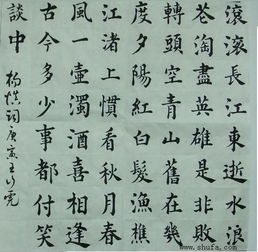 滾滾長江東逝水浪
花淘盡英雄是非敗
轉頭空青山舊在幾
度夕陽紅白髮漁樵
江渚上慣看秋月春
風一壺濁酒喜相逢
古今多少事都付笑
談中
楊慎詞庚寅王
www.shufa.com